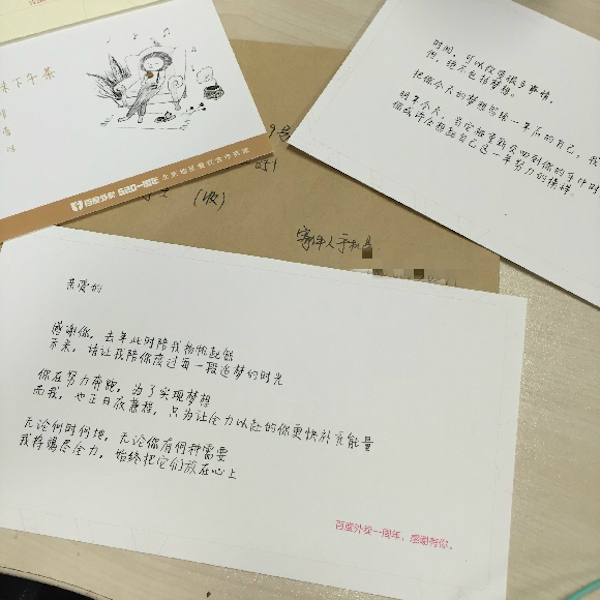 下午茶
百度外卖 520一周年
9号
051
(收)
寄件人手机号
时间，可以改变很多事情，
但，绝不包括梦想。
把你今天的梦想写给一年后的自己，我
明年今天，当您能重新见到你的手中时
你或许会想起自己这一年努力的模样
亲爱的
感谢你，去年此时陪我扬帆起航
未来，请让我陪你度过每一段追梦的时光
你在努力奔跑，为了实现梦想
而我，也正日夜兼程，只为让全力以赴的你更快补充能量
无论何时何地，无论你有何种需要
我将竭尽全力，始终把它们放在心上
百度外卖一周年，感谢有你。